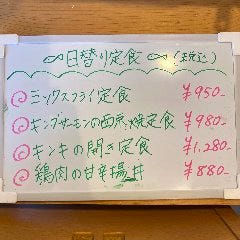 日替り定食(税込)
ミックスフライ定食 ¥950-
キングサーモンの西京焼定食 ¥980-
キンキの開き定食 ¥1,280-
鶏肉の甘辛揚丼 ¥880-